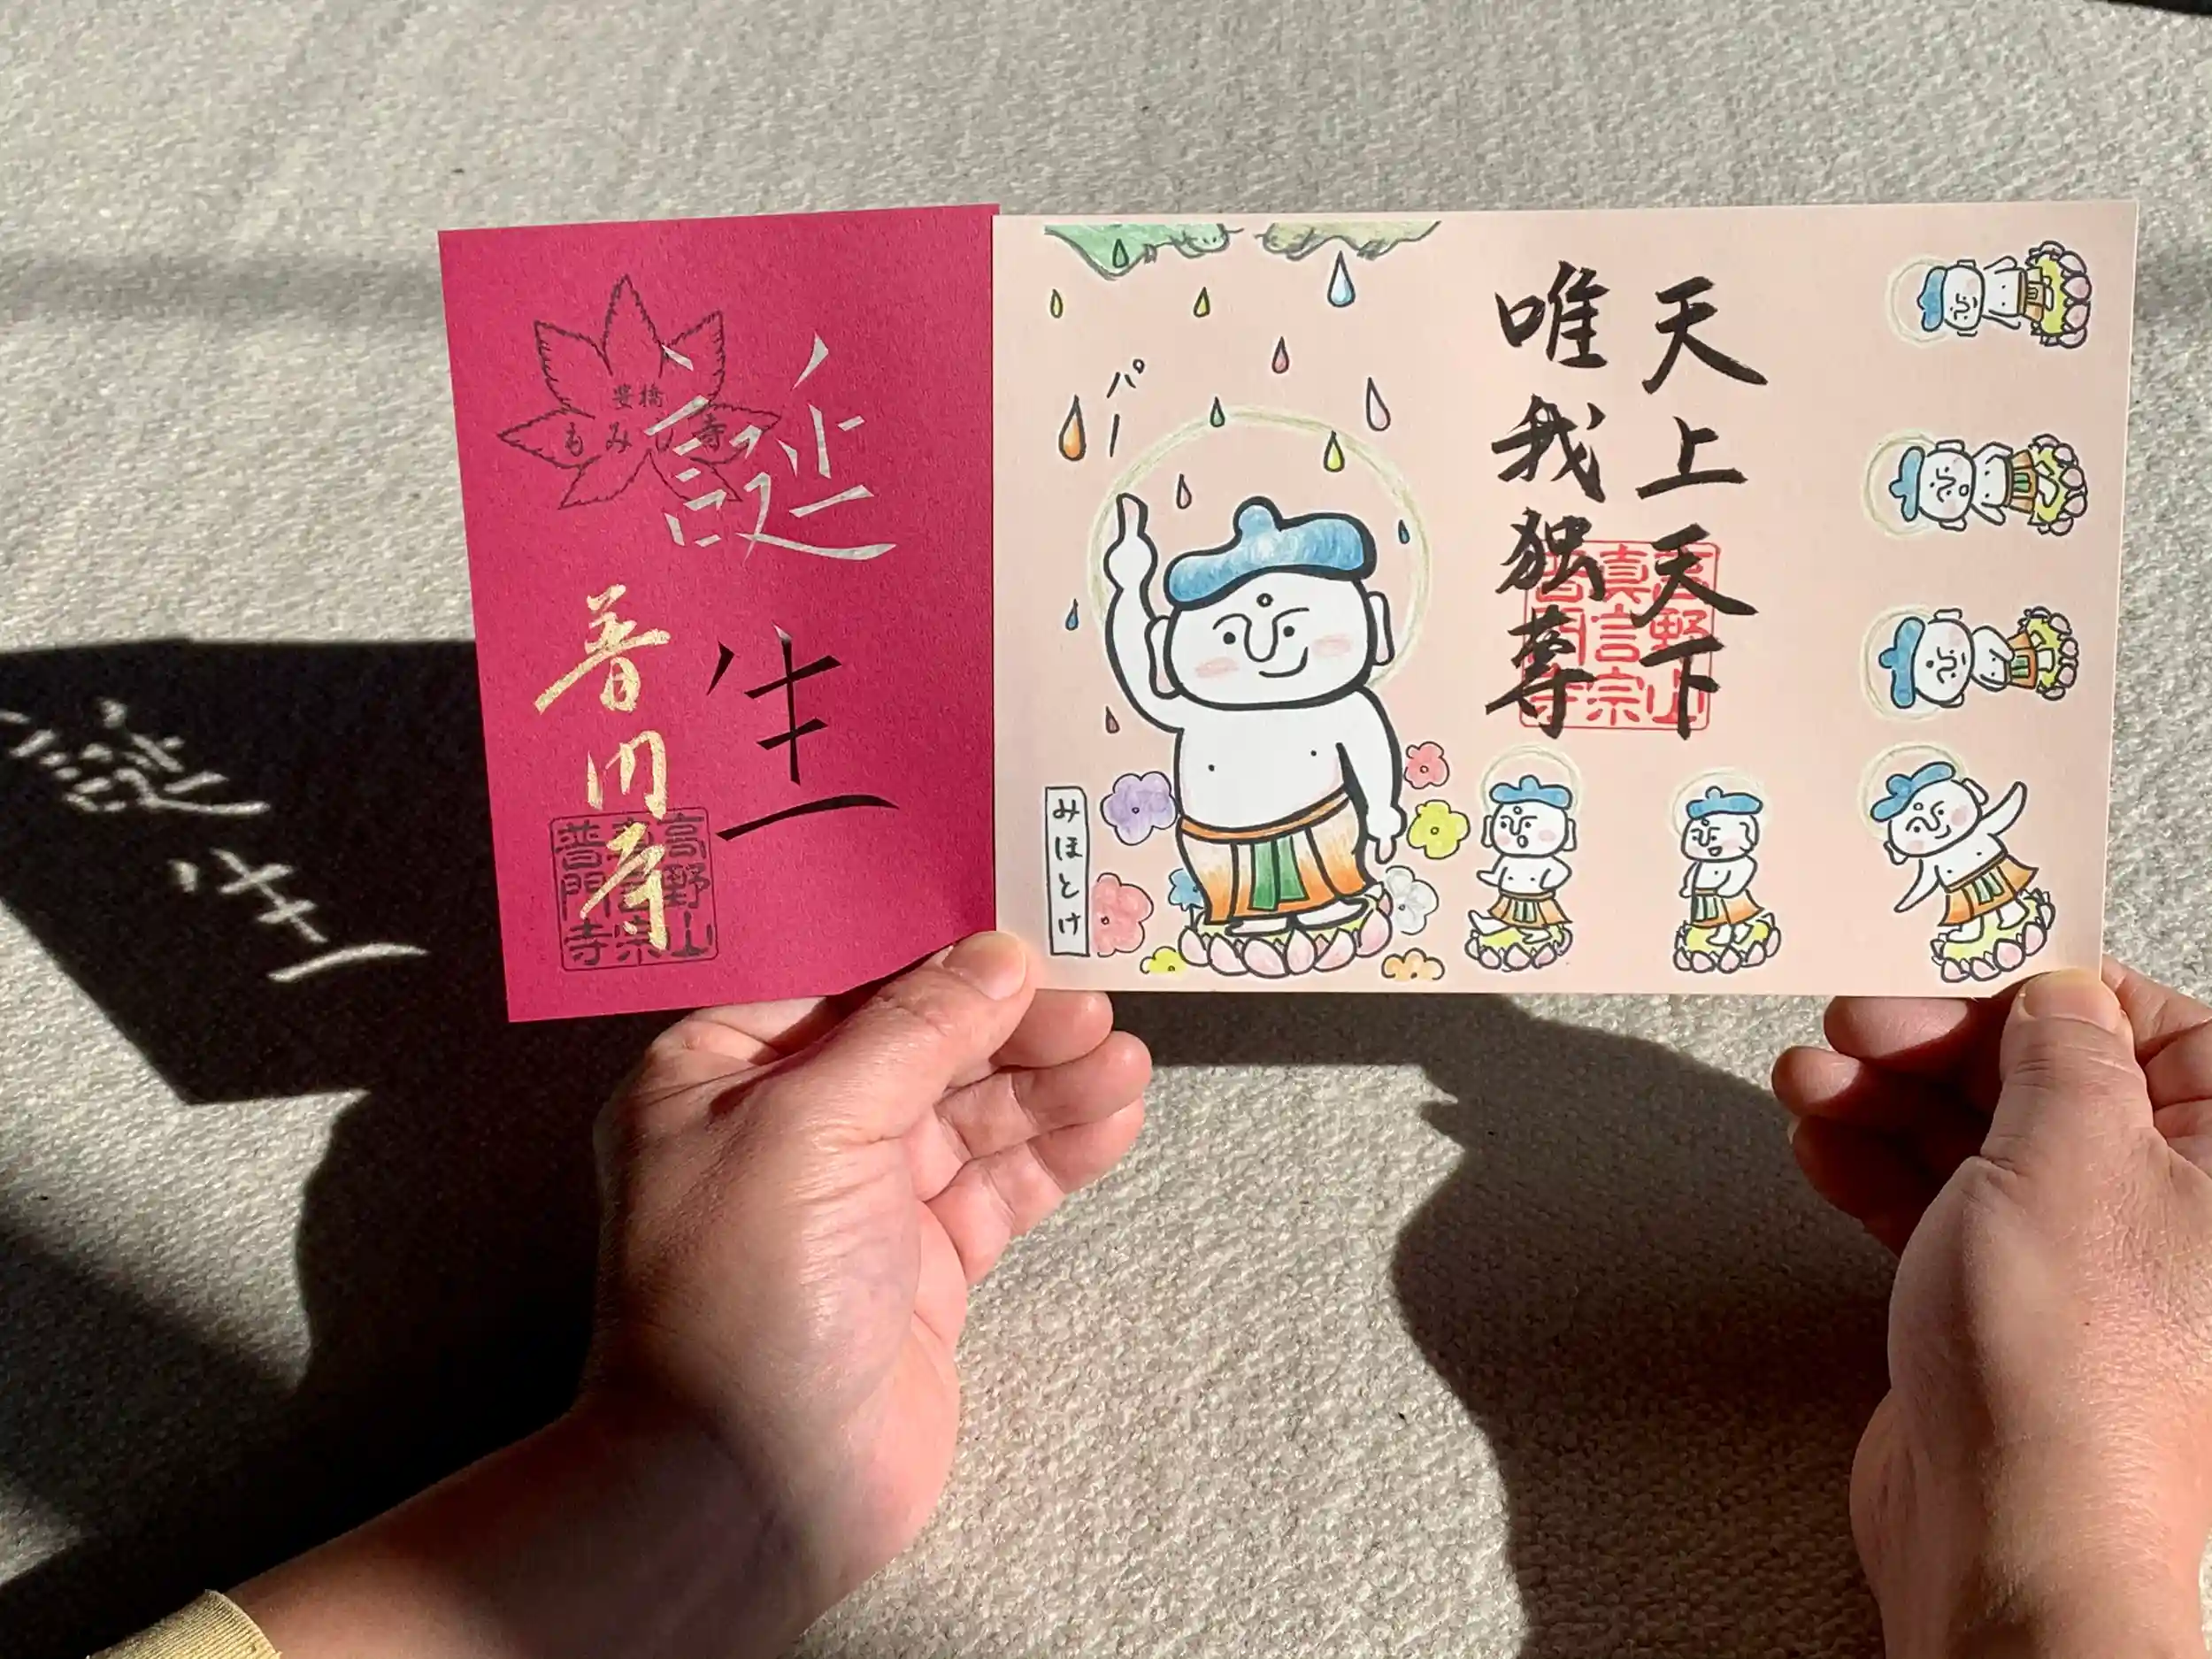 豊橋
もみじ寺
誕生
普門寺
高野山
真言宗
普門寺
パー
みほとけ
天上天下
唯我独尊
高野山
真言宗
普門寺
誕生